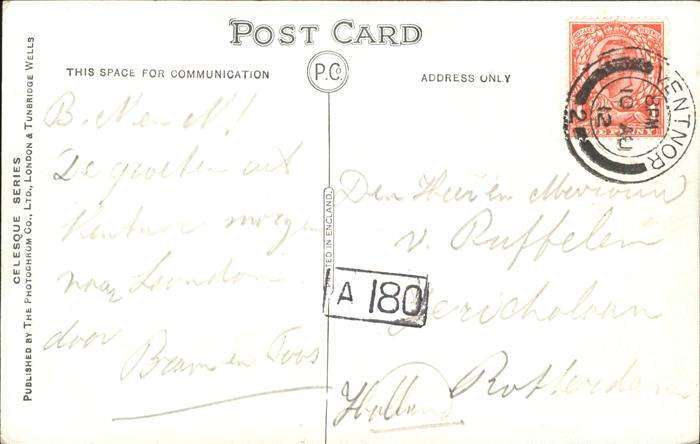 POST CARD
P.C.
THIS SPACE FOR COMMUNICATION
ADDRESS ONLY
B. N en N!
De groeten uit
Ventnor morgen
naar London
door
Bram en Toos
Den Heer en Mevrouw
v. Ruffelen
Jericholaan
Rotterdam
Holland
A 180
VENTNOR
8 PM
10 AU
12
2
PRINTED IN ENGLAND.
CELESQUE SERIES
PUBLISHED BY THE PHOTOCHROM CO., LTD., LONDON & TUNBRIDGE WELLS